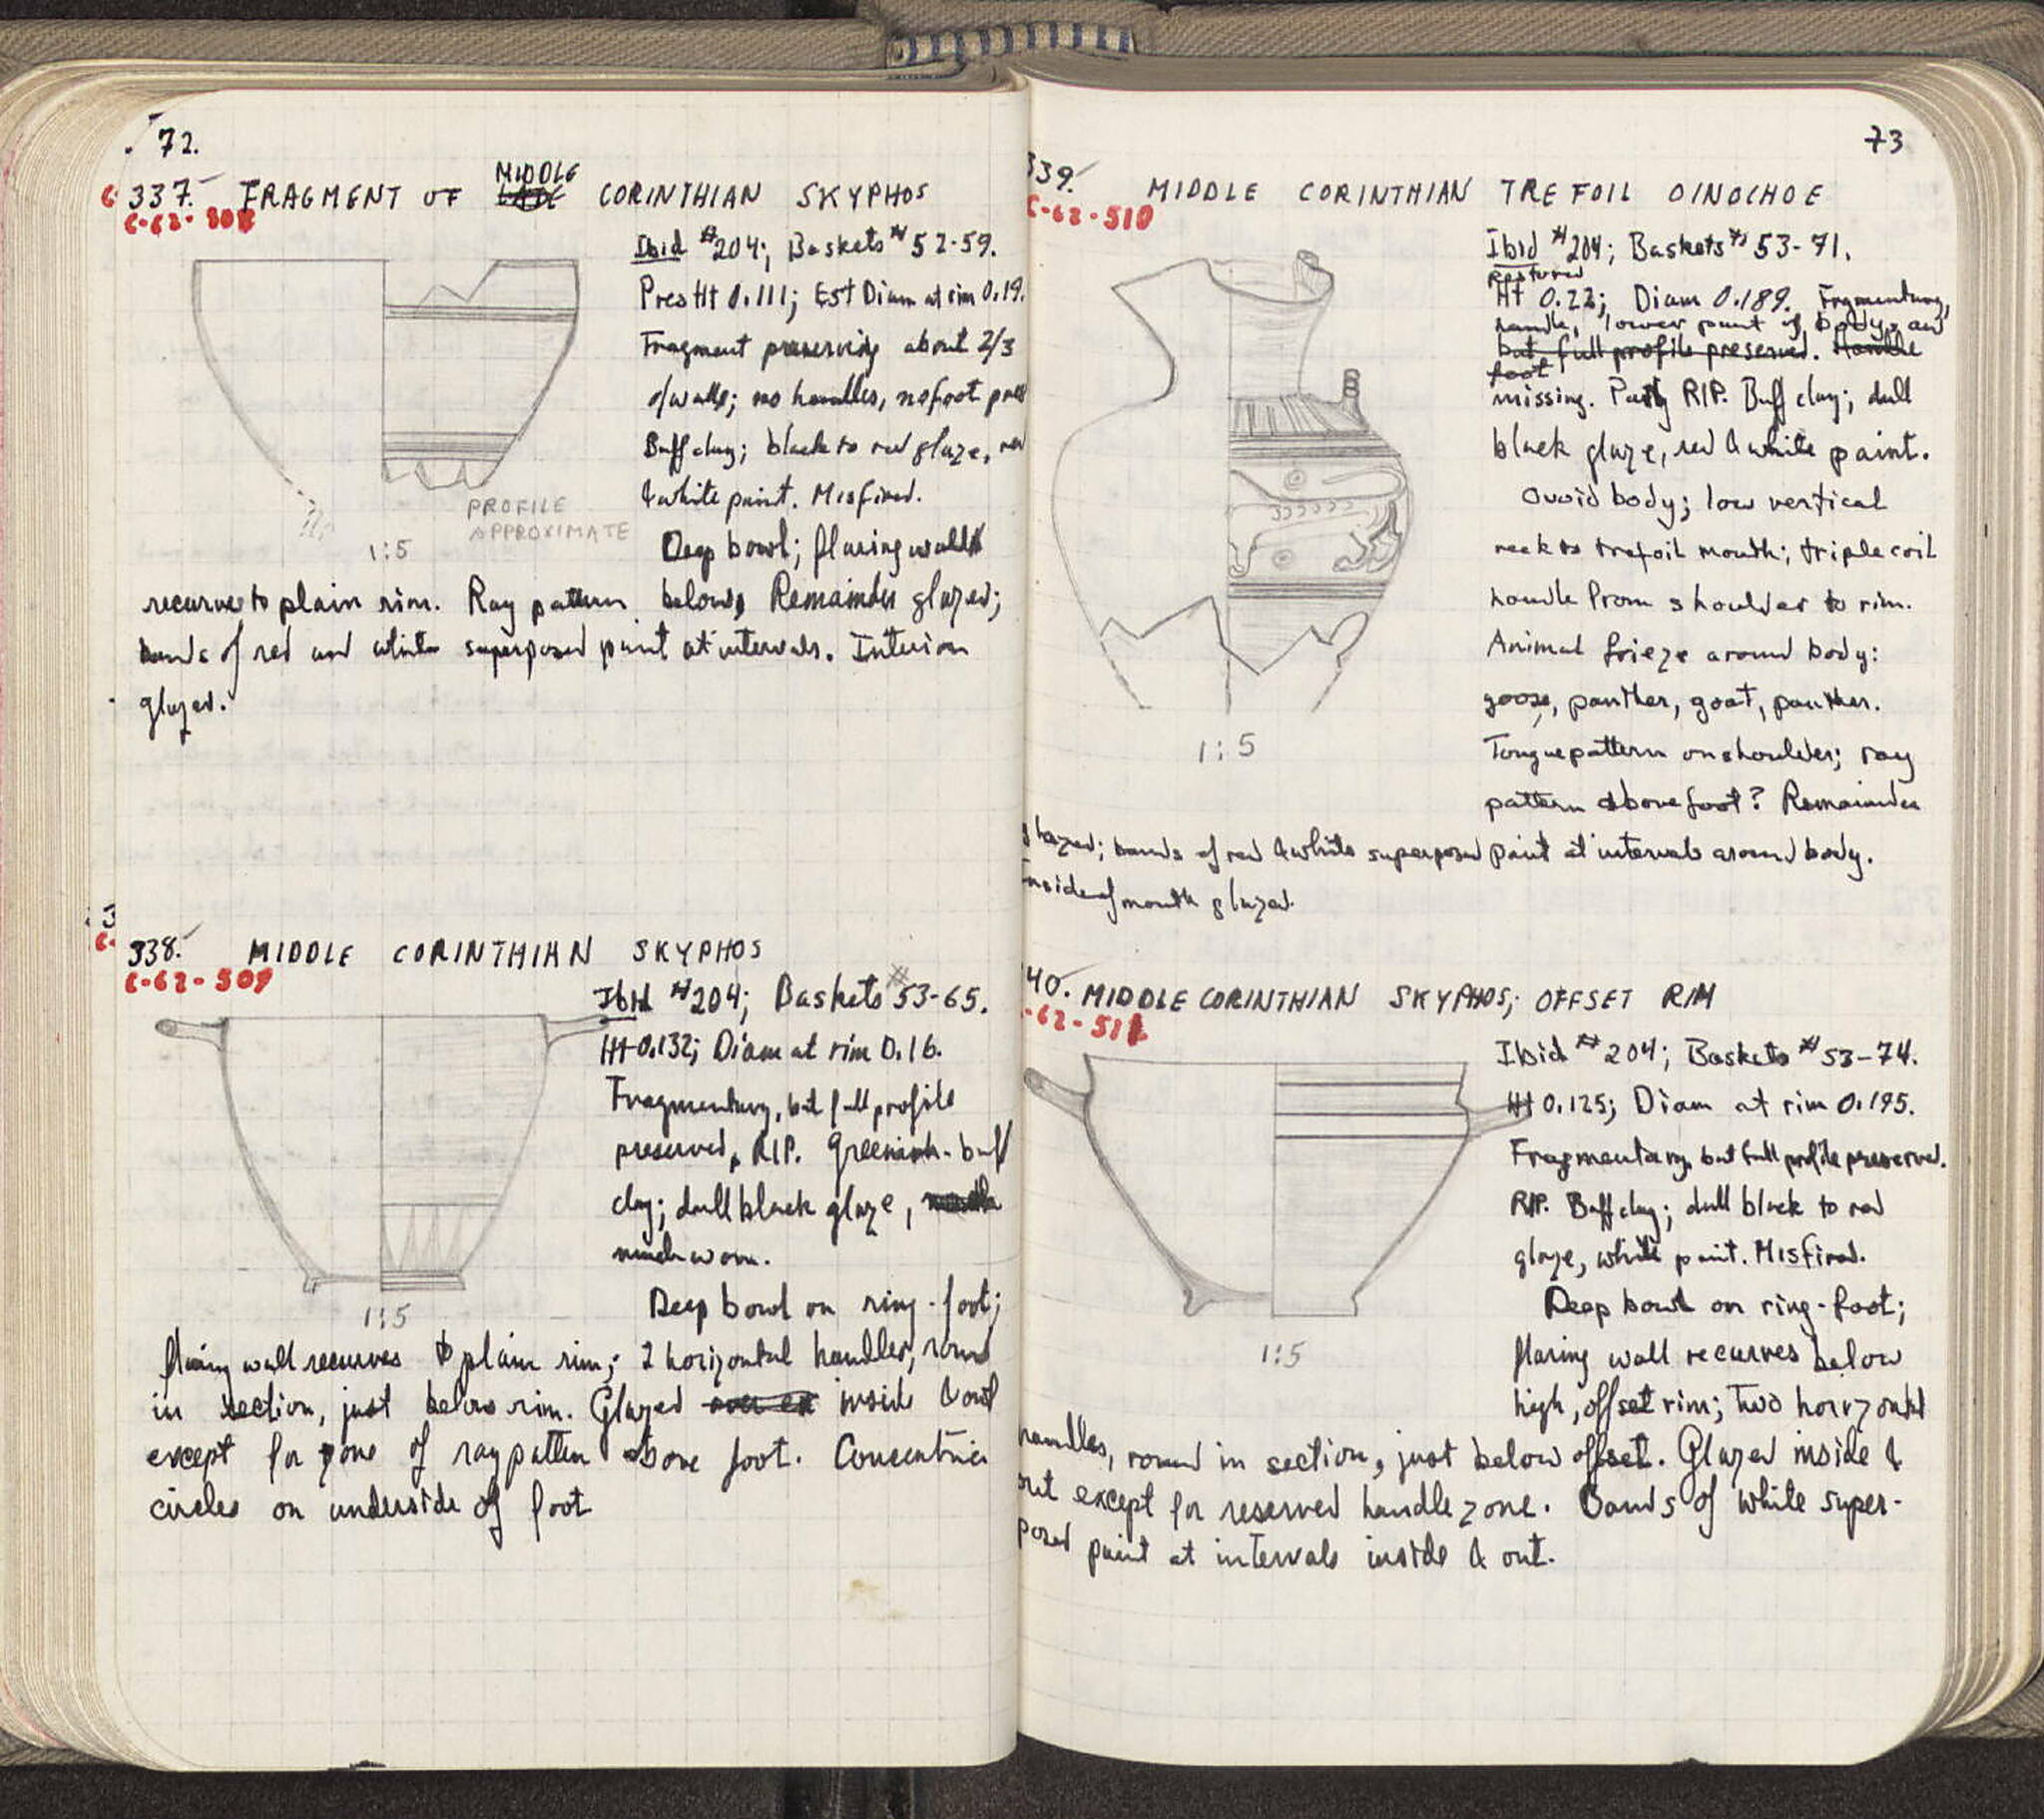 72.
337. FRAGMENT OF MIDDLE CORINTHIAN SKYPHOS
C-62-508
Ibid #204; Baskets #52-59.
Pres Ht 0.111; Est Diam at rim 0.19.
Fragment preserving about 2/3
of walls; no handles, no foot pres
Buff clay; black to red glaze, red
& white paint. Misfired.
PROFILE
APPROXIMATE
1:5
Deep bowl; flaring wall
recurves to plain rim. Ray pattern below. Remainder glazed;
bands of red and white superposed paint at intervals. Interior
glazed.
338. MIDDLE CORINTHIAN SKYPHOS
C-62-509
Ibid #204; Baskets #53-65.
Ht 0.132; Diam at rim 0.16.
Fragmentary, but full profile
preserved, RIP. Greenish-buff
clay; dull black glaze,
much worn.
1:5
Deep bowl on ring-foot;
flaring wall recurves to plain rim; 2 horizontal handles, round
in section, just below rim. Glazed inside & out
except for zone of ray pattern above foot. Concentric
circles on underside of foot
73
339. MIDDLE CORINTHIAN TREFOIL OINOCHOE
C-62-510
Ibid #204; Baskets #s 53-71.
restored
Ht 0.22; Diam 0.189. Fragmentary,
handle, lower part of body, and
but full profile preserved. Handle
foot
missing. Partly RIP. Buff clay; dull
black glaze, red & white paint.
Ovoid body; low vertical
neck to trefoil mouth; triple coil
handle from shoulder to rim.
Animal frieze around body:
goose, panther, goat, panther.
Tongue pattern on shoulder; ray
pattern above foot? Remainder
1:5
glazed; bands of red & white superposed paint at intervals around body.
Inside of mouth glazed.
40. MIDDLE CORINTHIAN SKYPHOS; OFFSET RIM
-62-511
Ibid #204; Baskets #53-74.
Ht 0.125; Diam at rim 0.195.
Fragmentary, but full profile preserved.
RIP. Buff clay; dull black to red
glaze, white paint. Misfired.
Deep bowl on ring-foot;
flaring wall recurves below
high, offset rim; two horizontal
1:5
handles, round in section, just below offset. Glazed inside &
out except for reserved handle zone. Bands of white super-
posed paint at intervals inside & out.